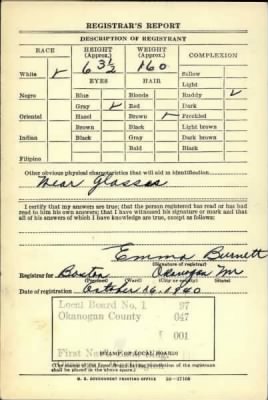 REGISTRAR'S REPORT
DESCRIPTION OF REGISTRANT
RACE HEIGHT (Approx.) WEIGHT (Approx.) COMPLEXION
White ✓ 6 3½ 160 Sallow
EYES HAIR Light
Negro Blue Blonde Ruddy ✓
Gray ✓ Red Dark
Oriental Hazel Brown ✓ Freckled
Brown Black Light brown
Indian Black Gray Dark brown
Bald Black
Filipino
Other obvious physical characteristics that will aid in identification
Wear Glasses
I certify that my answers are true; that the person registered has read or has
read to him his own answers; that I have witnessed his signature or mark and that
all of his answers of which I have knowledge are true, except as follows:
Emma Burnett
(Signature of registrar)
Registrar for Boston Okanogan
(Precinct) (Ward) (City or county) (State)
Date of registration October 16, 1940
Local Board No. 1 97
Okanogan County 047
001
First Nat
STAMP OF LOCAL BOARD
(The stamp of the Local Board having jurisdiction of the registrant
shall be placed in the above space.)
U. S. GOVERNMENT PRINTING OFFICE 16-17105